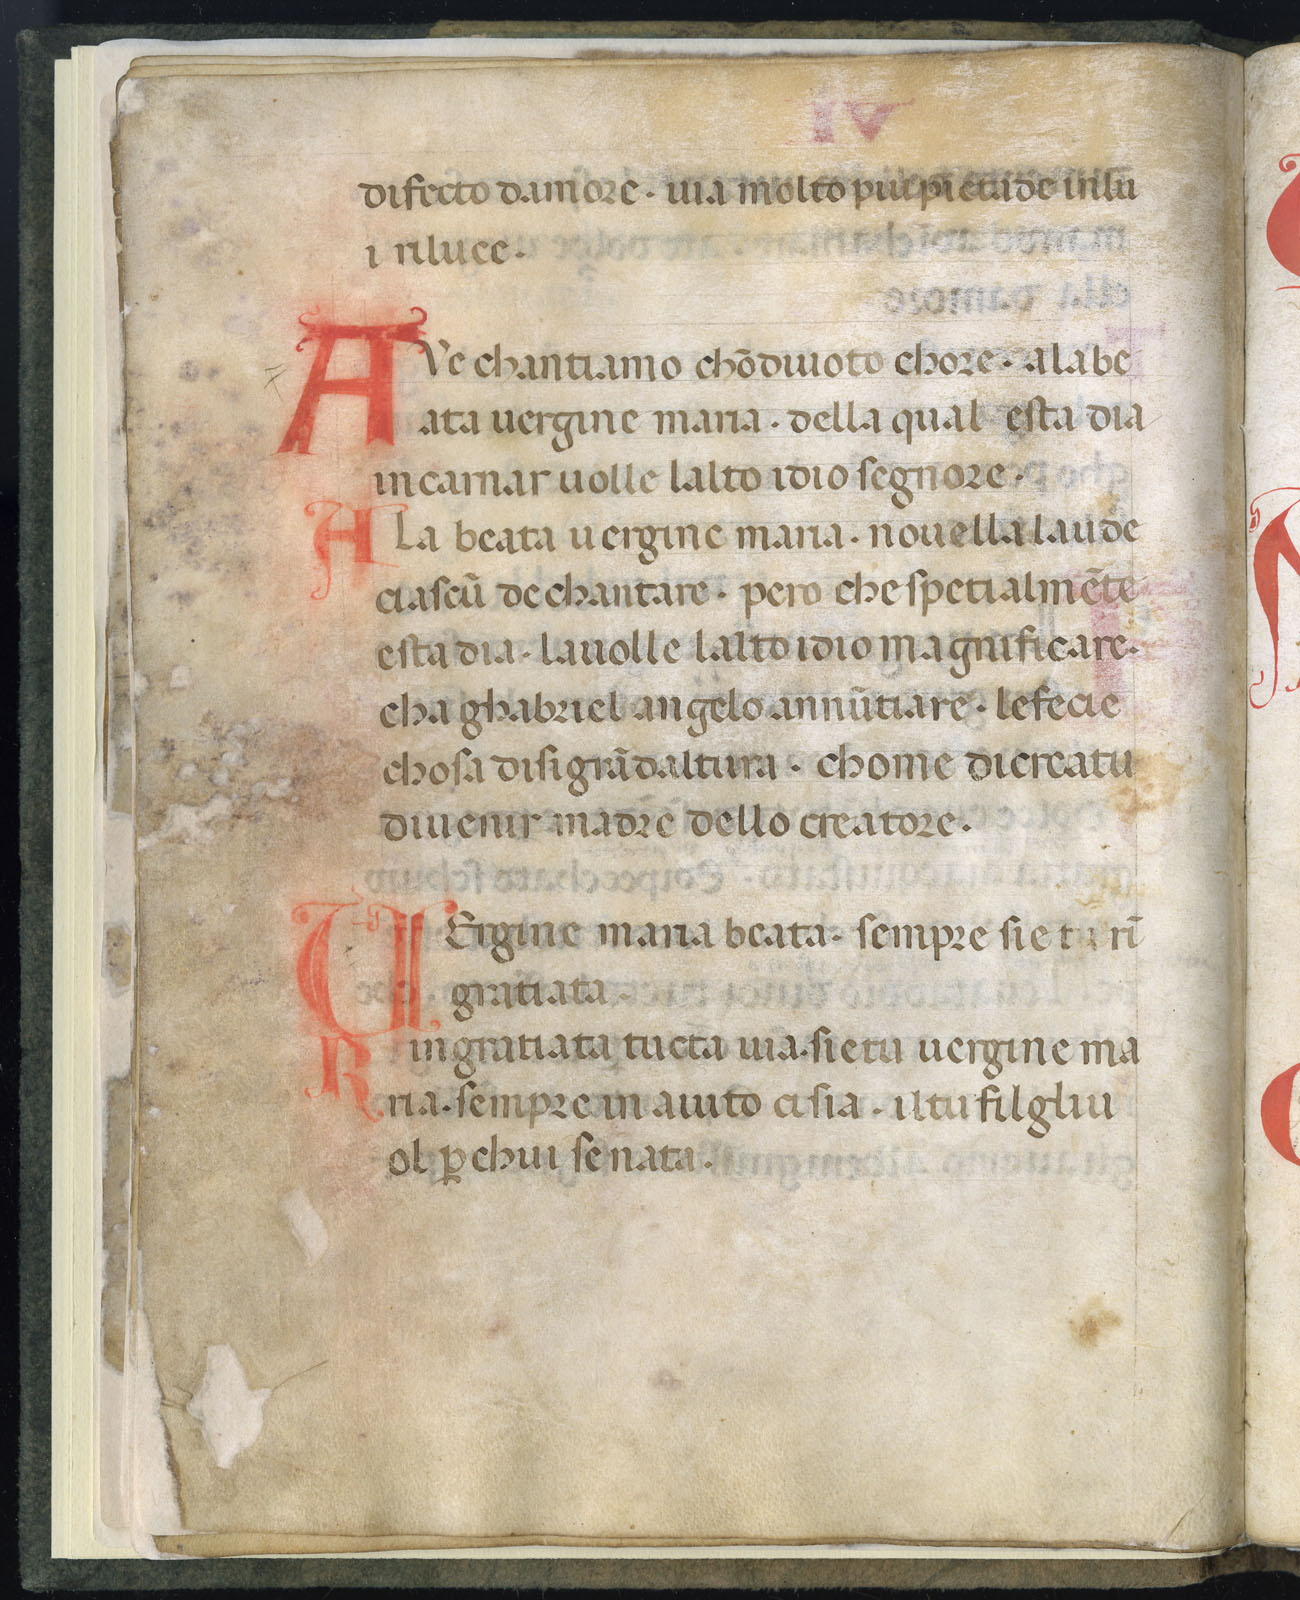 difecto damore · uia molto piu pietade inlu
i riluce ·
AVe chantiamo chōdiuoto chore · alabe
ata uergine maria · della qual esta dia
incarnar uolle lalto idio segnore ·
ALa beata uergine maria · nouella laude
ciascū dechantare · pero che spetialmēte
esta dia · lauolle lalto idio magnificare ·
cha ghabriel angelo annūtiare · lefecie
chosa disigrādaltura · chome dicreatu
diuenir madre dello creatore ·
UErgine maria beata · sempre sie tu rī
gratiata ·
Ringratiata tucta uia · sietu uergine ma
ria · sempre in aiuto cisia · iltu filgliu
ol ꝑchui se nata ·